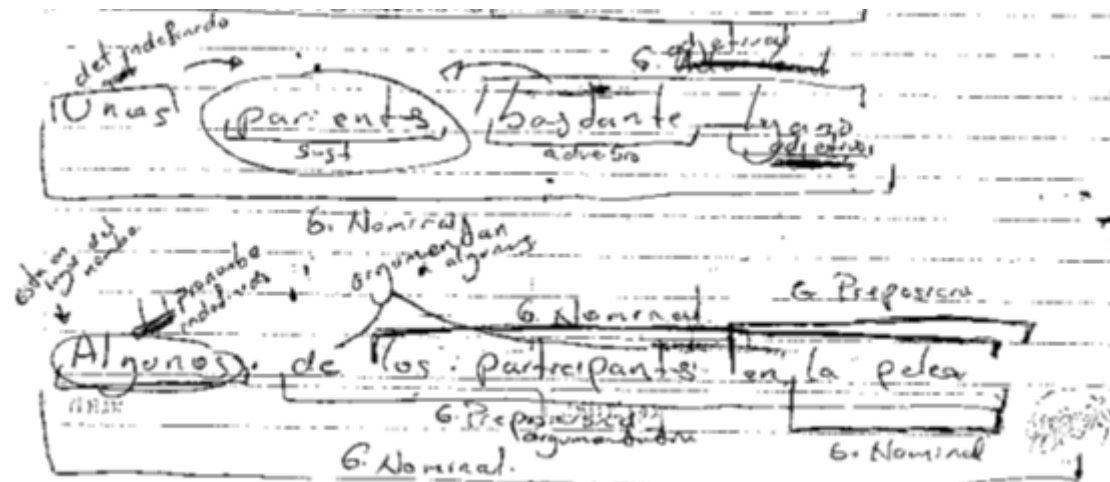 det indefinido
G. adjetival
Unos parientes bastante lejano
sust adverbio adjetivo
G. Nominal
Está en lugar del nombre
pronombre indefinido
argumentan a algunos
G. Nominal G. Preposicio
Algunos de los participantes en la pelea
G. Preposicional
argumentativo
G. Nominal G. Nominal